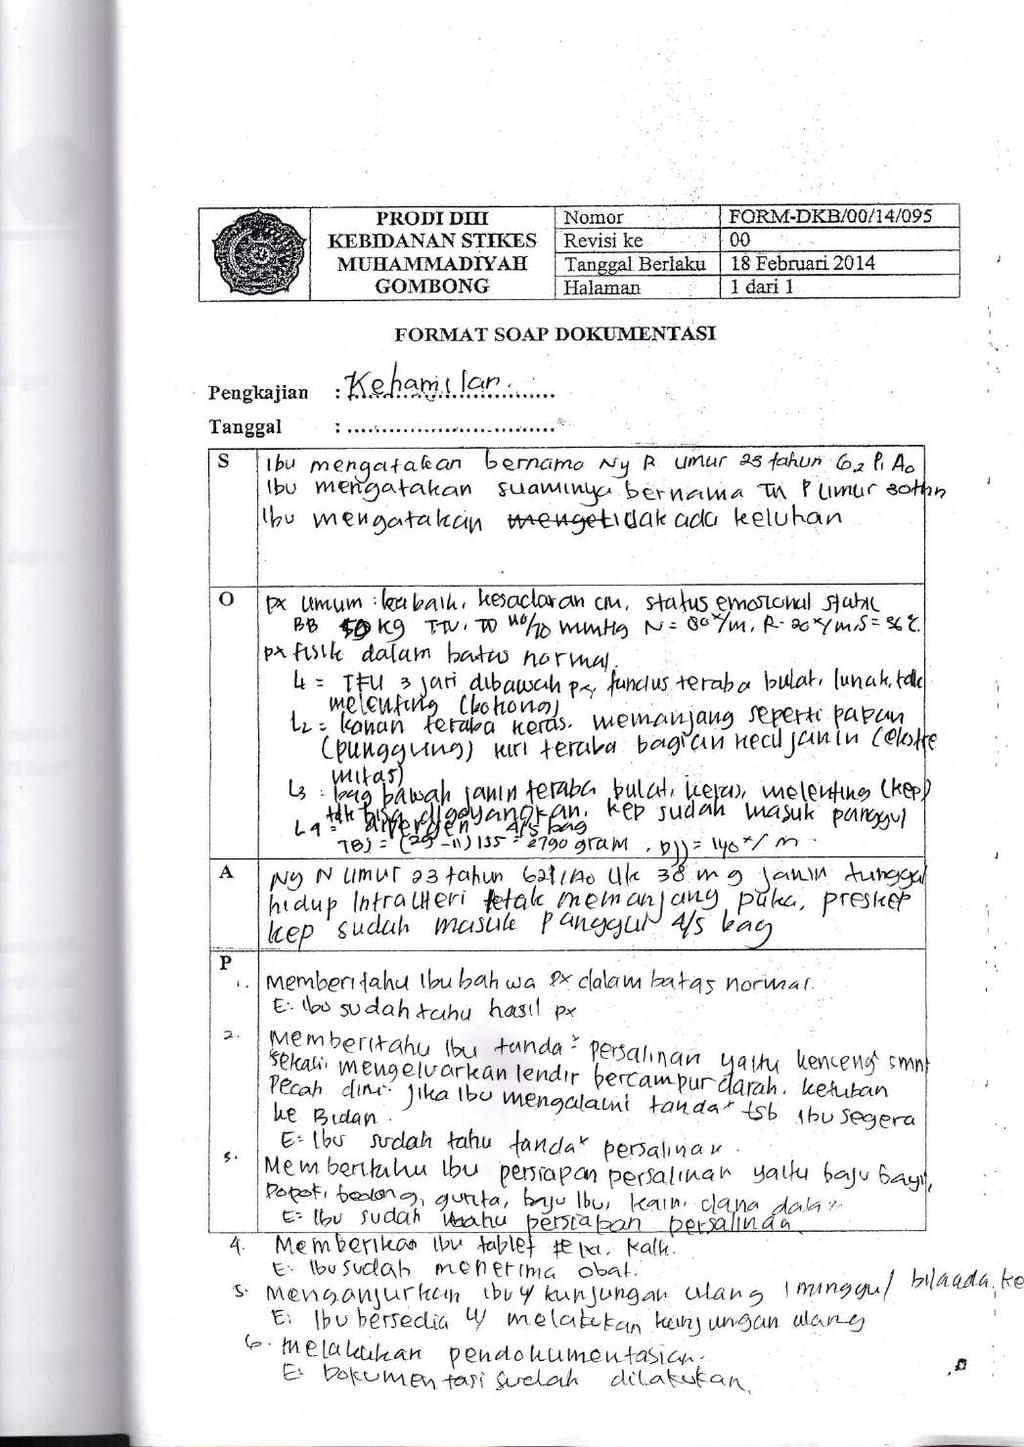 PRODI DIII
KEBIDANAN STIKES
MUHAMMADIYAH
GOMBONG
Nomor FORM-DKB/00/14/095
Revisi ke 00
Tanggal Berlaku 18 Februari 2014
Halaman 1 dari 1
FORMAT SOAP DOKUMENTASI
Pengkajian : Kehamilan.
Tanggal :
S Ibu mengatakan bernama Ny R umur 23 tahun G2 P1 A0
Ibu mengatakan suaminya bernama Tn P umur 30 thn
Ibu mengatakan tidak ada keluhan
O px umum : ku baik, kesadaran cm, status emosional stabil
BB 50 kg TTV, TD 110/70 mmHg N = 80x/m, R - 20x/m, S = 36°C
px fisik dalam batas normal.
L1 = TFU 3 jari dibawah px, fundus teraba bulat, lunak, tdk
melenting (bokong)
L2 = kanan teraba keras. memanjang seperti papan
(punggung) kiri teraba bagian kecil janin (ekstre
mitas)
L3 : bag bawah janin teraba bulat, keras, melenting (kep)
tdk bisa digoyangkan. kep sudah masuk panggul
L4 = divergen 4/5 bag
TBJ = (29 - 11) 155 = 2790 gram, DJJ = 140x/m.
A Ny N umur 23 tahun G2P1A0 Uk 38 mg janin tunggal
hidup Intra Uteri letak memanjang puka, preskep
kep sudah masuk Panggul 4/5 bag
P
1. Memberitahu Ibu bahwa px dalam batas normal.
E: Ibu sudah tahu hasil px
2. Memberitahu Ibu tanda² persalinan yaitu kenceng² smn
sekali, mengeluarkan lendir bercampur darah, ketuban
Pecah dini. Jika Ibu mengalami tanda² tsb Ibu segera
ke Bidan.
E: Ibu sudah tahu tanda² persalinan.
3. Memberitahu Ibu persiapan persalinan yaitu baju bayi,
Popok, bedong, gurita, baju Ibu, kain,
E: Ibu sudah tahu persiapan persalinan
4. Memberikan Ibu tablet Fe, Kalk.
E: Ibu sudah menerima obat.
5. Menganjurkan Ibu u/ kunjungan ulang 1 minggu / bila ada ke
E: Ibu bersedia u/ melakukan kunjungan ulang
6. Melakukan pendokumentasian.
E: Dokumentasi sudah dilakukan.